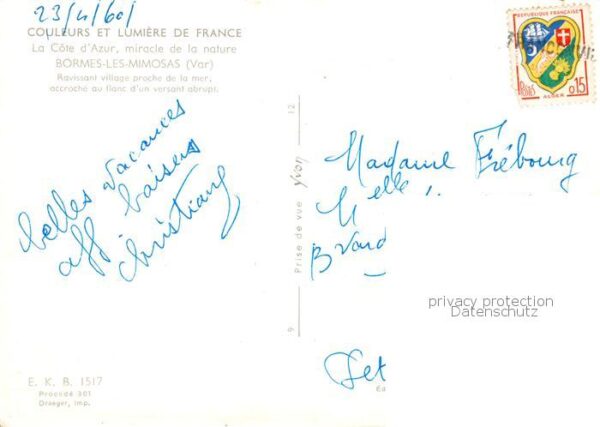 23/4/60/
COULEURS ET LUMIÈRE DE FRANCE
La Côte d'Azur, miracle de la nature
BORMES-LES-MIMOSAS (Var)
Ravissant village proche de la mer,
accroché au flanc d'un versant abrupt.
belles vacances
aff baisers
Christiane
E. K. B. 1517
Procédé 301
Draeger, imp.
9 Prise de vue yvon 12
REPUBLIQUE FRANÇAISE
POSTES 0,15
ALGER
Madame Frébourg
Melle
privacy protection
Datenschutz